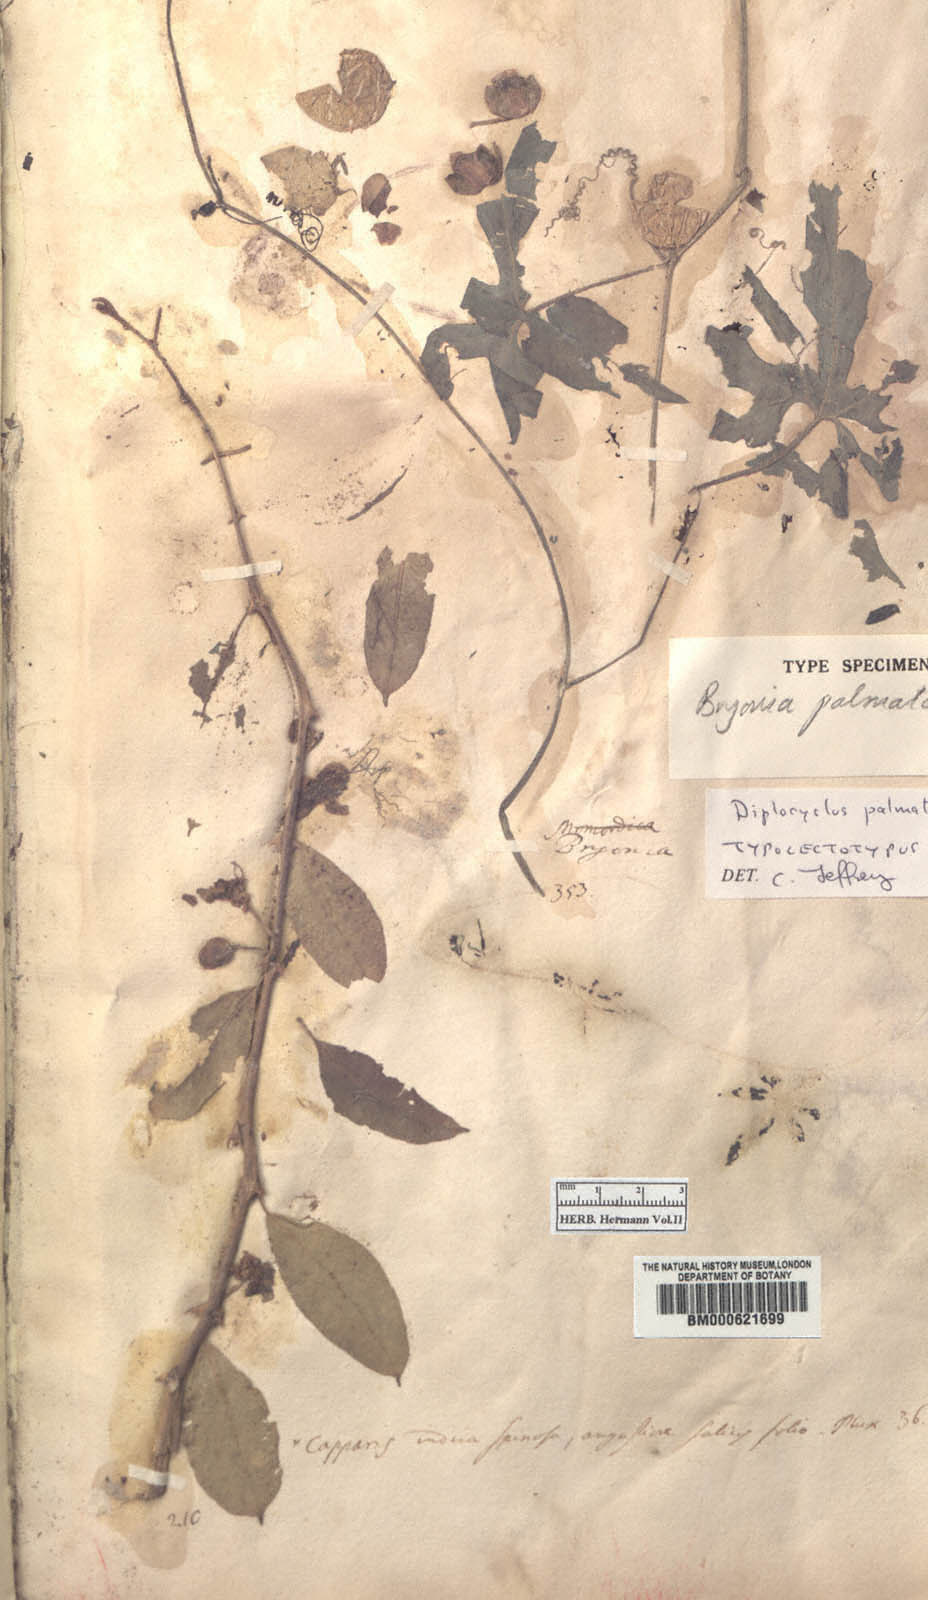 TYPE SPECIMEN
Bryonia palmata
Diplocyclus palmat
TYPOLECTOTYPUS
DET. C. Jeffrey
Momordica
Bryonia
353.
mm 1 2 3
HERB. Hermann Vol.II
THE NATURAL HISTORY MUSEUM,LONDON
DEPARTMENT OF BOTANY
BM000621699
* Capparis indica spinosa, angustiore salicis folio. Pluk 36.
210